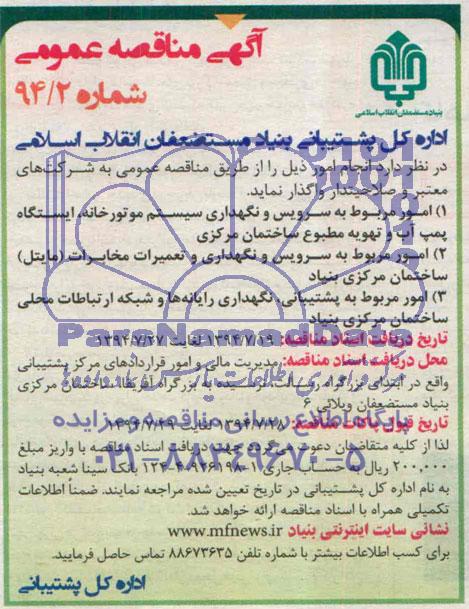 آگهی مناقصه عمومی
شماره ۹۴/۲
بنیاد مستضعفان انقلاب اسلامی
اداره کل پشتیبانی بنیاد مستضعفان انقلاب اسلامی
در نظر دارد انجام امور ذیل را از طریق مناقصه عمومی به شرکت‌های
معتبر و صلاحیتدار واگذار نماید.
۱) امور مربوط به سرویس و نگهداری سیستم موتورخانه، ایستگاه
پمپ آب و تهویه مطبوع ساختمان مرکزی
۲) امور مربوط به سرویس و نگهداری و تعمیرات مخابرات (مایتل)
ساختمان مرکزی بنیاد
۳) امور مربوط به پشتیبانی، نگهداری رایانه‌ها و شبکه ارتباطات محلی
ساختمان مرکزی بنیاد
تاریخ دریافت اسناد مناقصه: ۱۳۹۴/۷/۱۹ لغایت ۱۳۹۴/۷/۲۷
محل دریافت اسناد مناقصه: مدیریت مالی و امور قراردادهای مرکز پشتیبانی
واقع در ابتدای بزرگراه رسالت، نرسیده به بزرگراه آفریقا، ساختمان مرکزی
بنیاد مستضعفان
تاریخ قبول پاکات مناقصه: ۱۳۹۴/۷/۲۸ لغایت
لذا از کلیه متقاضیان دعوت می‌گردد جهت دریافت اسناد مناقصه با واریز مبلغ
۲۰۰,۰۰۰ ریال به حساب جاری بانک سینا شعبه بنیاد
به نام اداره کل پشتیبانی در تاریخ تعیین شده مراجعه نمایند. ضمناً اطلاعات
تکمیلی همراه با اسناد مناقصه ارائه خواهد شد.
نشانی سایت اینترنتی بنیاد www.mfnews.ir
برای کسب اطلاعات بیشتر با شماره تلفن ۸۸۶۷۳۶۳۵ تماس حاصل فرمایید.
اداره کل پشتیبانی
ParsNamadData
پایگاه اطلاع رسانی مناقصه و مزایده
۰۲۱-۸۸۳۴۹۶۷۰-۵